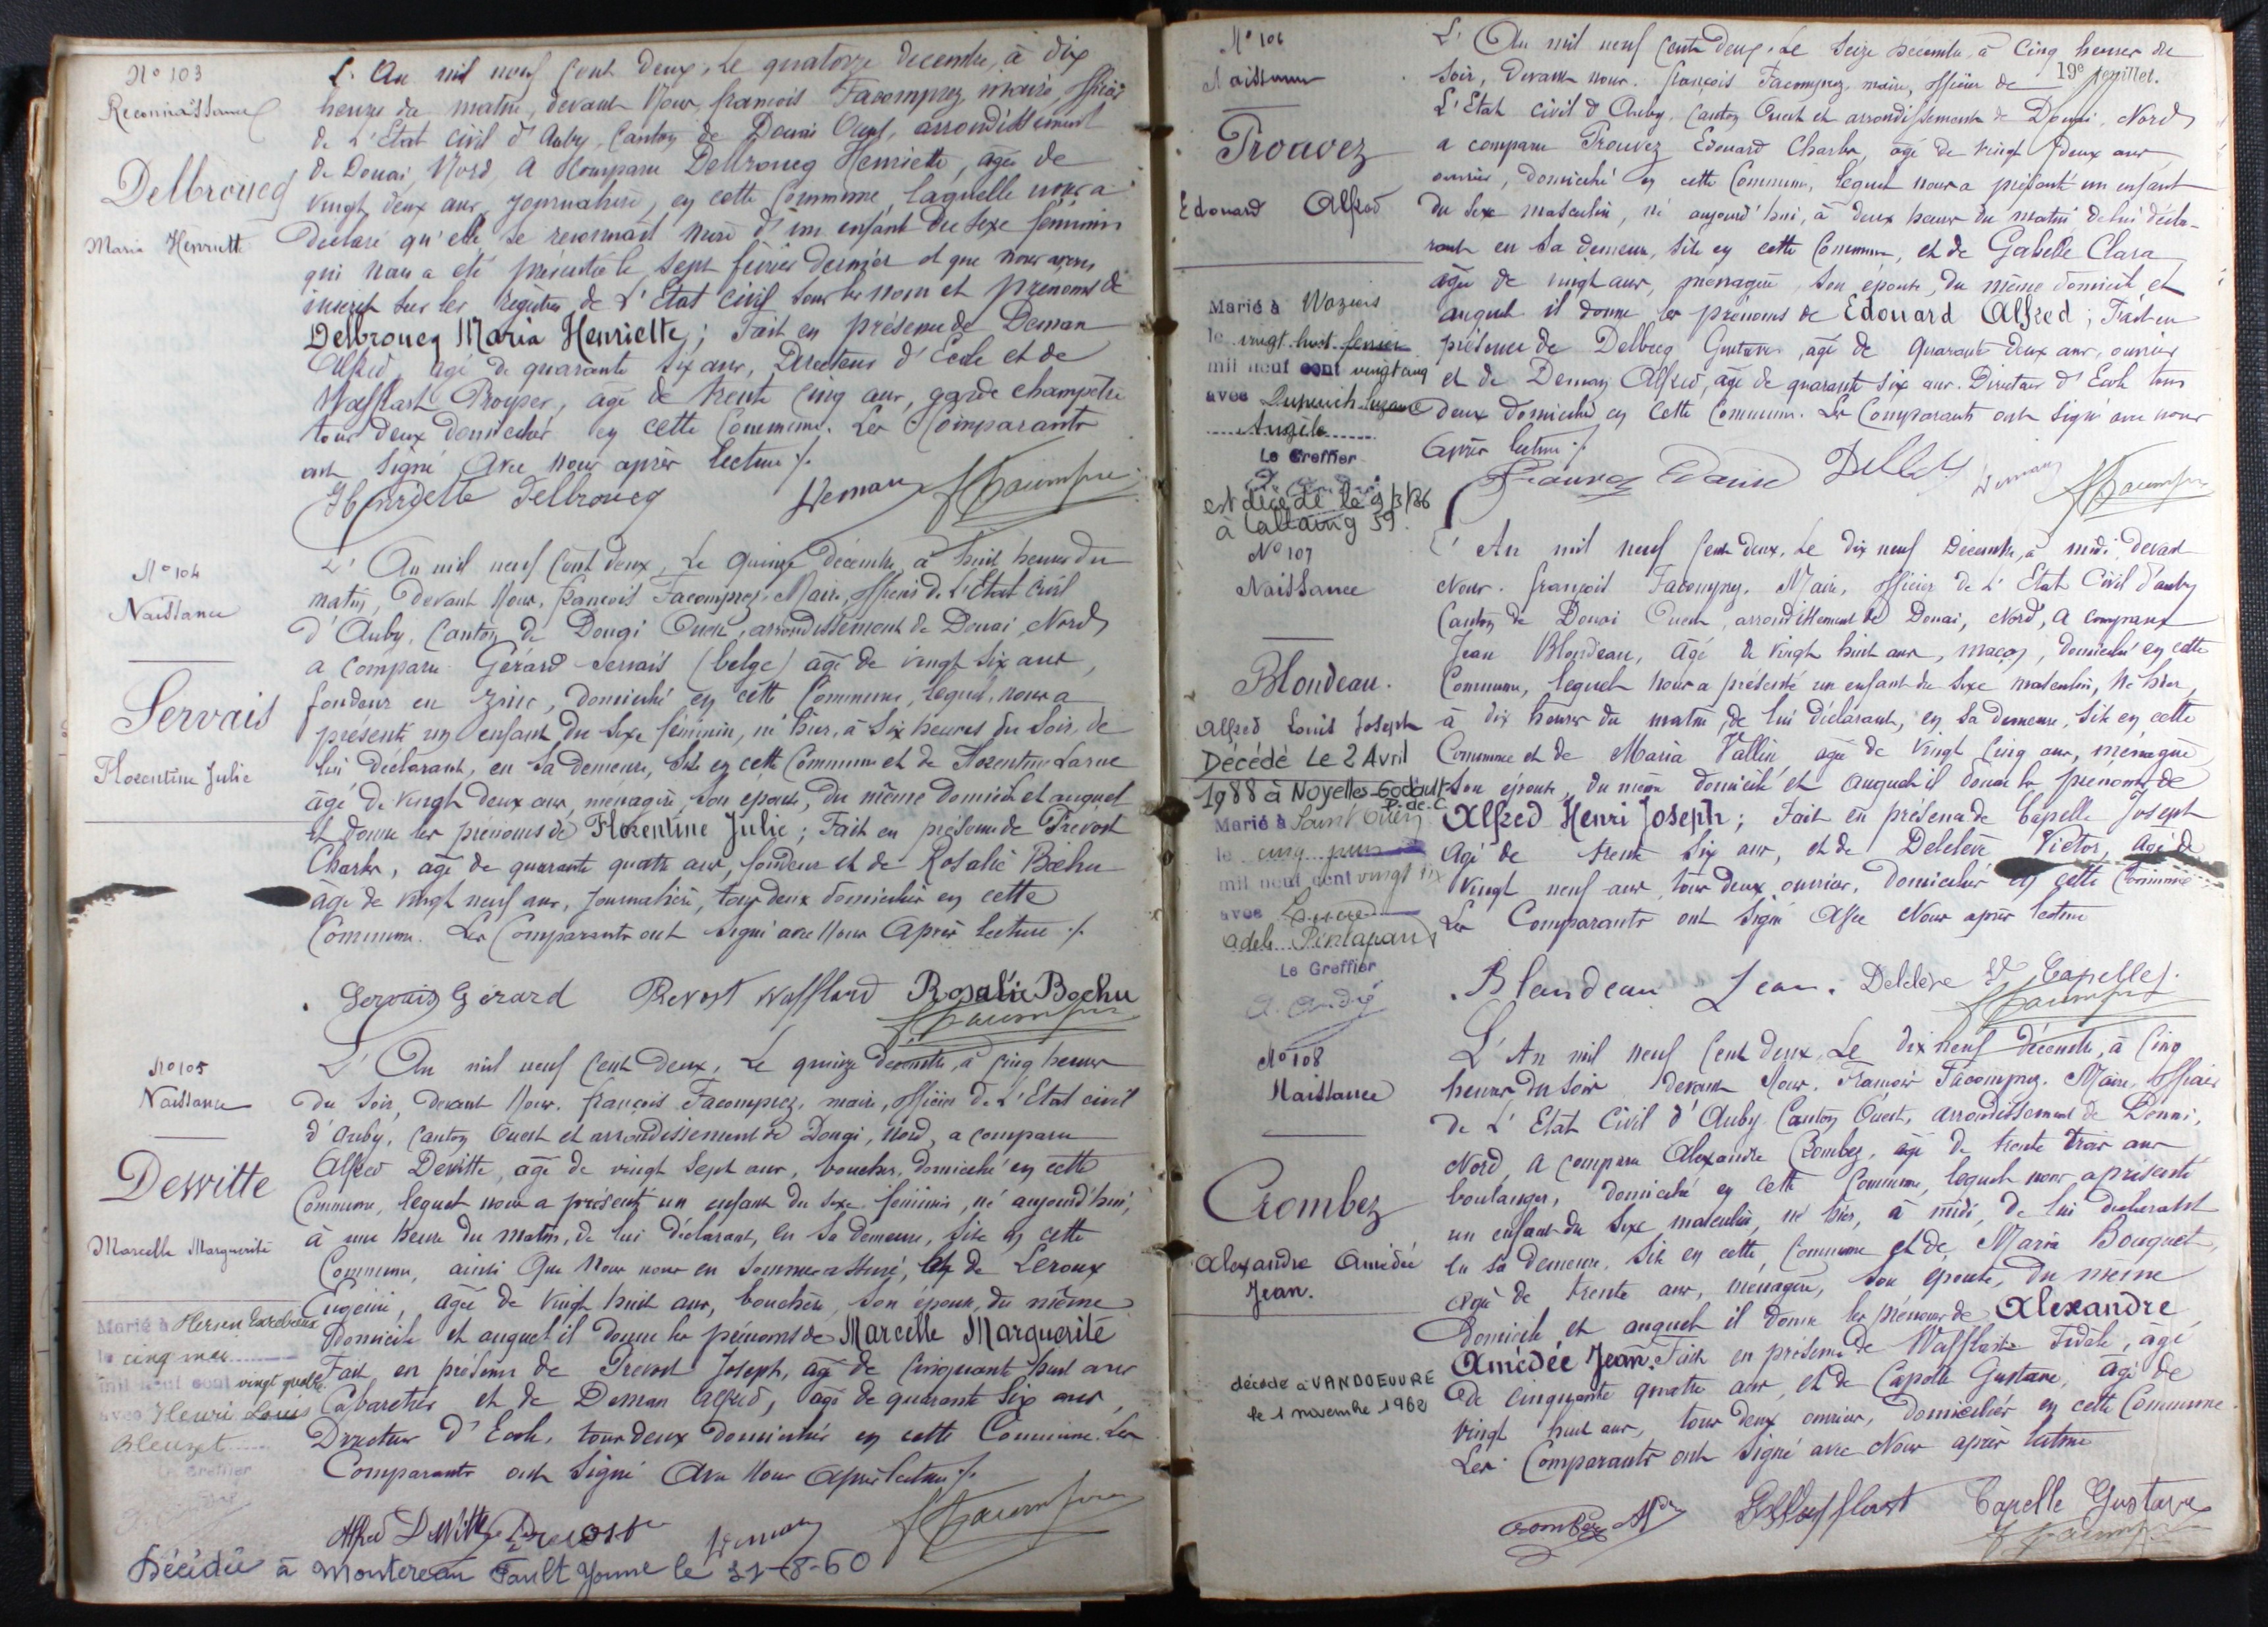 N° 103
Reconnaissance
Delbroucq
Maria Henriette
L'An mil neuf cent deux, le quatorze decembre, à dix
heures du matin, devant Nous, françois Facompréz, maire, officier
de L'Etat civil d'Auby, Canton de Douai Ouest, arrondissement
de Douai, Nord, a Comparu Delbroucq Henriette, âgée de
vingt deux ans, journalière, en cette Commune, laquelle nous a
déclaré qu'elle se reconnait mère d'un enfant du sexe féminin
qui nous a été présenté le sept février dernier et que nous avons
inscrit sur les registres de L'Etat civil sous les nom et prénoms de
Delbroucq Maria Henriette; Fait en présence de Deman
Alfred, âgé de quarante six ans, Directeur d'Ecole et de
Wafflart Prosper, âgé de trente cinq ans, garde champêtre
tous deux domiciliés en cette Commune. Les Comparants
ont signé avec Nous après lecture ./.
Henriette Delbroucq Deman
N° 104
Naissance
Servais
Florentine Julie
L'An mil neuf Cent deux, Le quinze décembre, à huit heures du
matin, Devant Nous, françois Facomprez, Maire, officier de L'Etat Civil
d'Auby, Canton de Douai Ouest, arrondissement de Douai, Nord,
a comparu Gérard Servais (belge) âgé de vingt six ans,
fondeur en zinc, domicilié en cette Commune, lequel nous a
présenté un enfant du sexe féminin, né hier, à six heures du soir, de
lui déclarant, en sa demeure, site en cette Commune et de Florentine Larue
âgé de vingt deux ans, ménagère, son épouse, du même domicile et auquel
il donne les prénoms de Florentine Julie; Fait en présence de Prevost
Charles, âgé de quarante quatre ans, fondeur et de Rosalie Bochu
âgé de vingt neuf ans, Journalière, tous deux domiciliés en cette
Commune. Les Comparants ont signé avec Nous Après lecture ./.
Servais Gérard Prevost Wafflard Rosalie Bochu
N° 105
Naissance
Dewitte
Marcelle Marguerite
Marié à Hersin Coupigny
le cinq mai
mil neuf cent vingt quatre
avec Henri Louis
Bleuzet
Le Greffier
L'An mil neuf Cent deux, Le quinze decembre, à cinq heures
du soir, devant Nous, françois Facomprez, maire, officier de L'Etat civil
d'Auby, Canton Ouest et arrondissement de Douai, Nord, a comparu
Alfred Dewitte, âgé de vingt sept ans, boucher, domicilié en cette
Commune, lequel nous a présenté un enfant du sexe féminin, né aujourd'hui,
à une heure du matin, de lui déclarant, en sa demeure, site en cette
Commune, ainsi que Nous nous en sommes assuré, et de Leroux
Eugénie, âgée de vingt huit ans, bouchère, son épouse, du même
domicile et auquel il donne les prénoms de Marcelle Marguerite
Fait en présence de Prevost Joseph, âgé de cinquante huit ans
Cabaretier et de Deman Alfred, âgé de quarante six ans,
Directeur d'Ecole, tous deux domiciliés en cette Commune. Les
Comparants ont signé avec Nous après lecture ./.
Alfred DeWitte Prevost Deman
Décédée à Montereau Fault Yonne le 31-8-60
19e feuillet.
N° 106
Naissance
Trouvez
Edouard Alfred
Marié à Waziers
le vingt huit fevrier
mil neuf cent vingt cinq
avec Dupuich Suzanne
Angèle
Le Greffier
est décédé le 9/3/86
à Lallaing 59.
L'An mil neuf Cent deux, Le seize decembre, à cinq heures du
soir, devant nous, françois Facomprez, maire, officier de
L'Etat civil d'Auby, Canton Ouest et arrondissement de Douai, Nord,
a comparu Trouvez Edouard Charles, âgé de vingt deux ans
ouvrier, domicilié en cette Commune, lequel nous a présenté un enfant
du sexe masculin, né aujourd'hui, à deux heures du matin, de lui décla-
rant en sa demeure, site en cette Commune, et de Gabelle Clara
âgée de vingt ans, ménagère, son épouse, du même domicile et
auquel il donne les prénoms de Edouard Alfred; Fait en
présence de Delbecq Gustave, âgé de quarante deux ans, ouvrier
et de Deman Alfred, âgé de quarante six ans, Directeur d'Ecole tous
deux domiciliés en cette Commune. Les Comparants ont signé avec nous
après lecture ./.
Deman
N° 107
Naissance
Blondeau.
Alfred Louis Joseph
Décédé Le 2 Avril
1988 à Noyelles-Godault
P. de C.
Marié à Saint Ouen
le cinq juin
mil neuf cent vingt six
avec
Adèle
Le Greffier
A. André
L'An mil neuf cent deux, Le dix neuf Décembre, à midi, devant
Nous, françois Facomprez, Maire, officier de L'Etat Civil d'auby
Canton de Douai Ouest, arrondissement de Douai, Nord, a comparu
Jean Blondeau, âgé de vingt huit ans, maçon, domicilié en cette
Commune, lequel Nous a présenté un enfant du sexe masculin, né hier,
à dix heures du matin, de lui déclarant, en sa demeure, site en cette
Commune et de Maria Vallin, âgée de vingt cinq ans, ménagère
son épouse, du même domicile et auquel il donne les prénoms de
Alfred Henri Joseph; Fait en présence de Capelle Joseph
âgé de trente six ans, et de Delelève Victor, âgé de
vingt neuf ans, tous deux ouvriers, domiciliés en cette Commune
Les Comparants ont signé avec Nous après lecture
Blondeau Jean. Delelève V Capelle J.
N° 108
Naissance
Crombez
Alexandre Amédée
Jean.
décédé à VANDOEUVRE
le 1 novembre 1962
L'An mil neuf Cent deux, Le dix neuf décembre, à cinq
heures du soir devant Nous, François Facomprez, Maire, officier
de L'Etat Civil d'Auby Canton Ouest, arrondissement de Douai,
Nord, a comparu Alexandre Crombez, âgé de trente trois ans
boulanger, domicilié en cette Commune, lequel nous a présenté
un enfant du sexe masculin, né hier, à midi, de lui déclarant
en sa demeure, site en cette Commune et de Maria Bouquet,
âgée de trente ans, ménagère, son épouse, du même
domicile et auquel il donne les prénoms de Alexandre
Amédée Jean. Fait en présence de Wafflart Fidèle, âgé
de cinquante quatre ans, et de Capelle Gustave, âgé de
vingt huit ans, tous deux ouvriers, domiciliés en cette Commune.
Les Comparants ont signé avec Nous après lecture
Crombez Wafflart Capelle Gustave